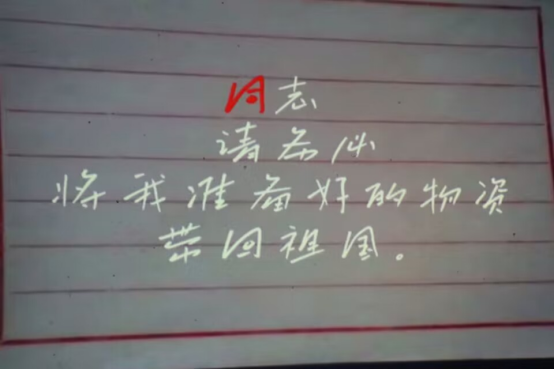 同志
请务必
将我准备好的物资
带回祖国。